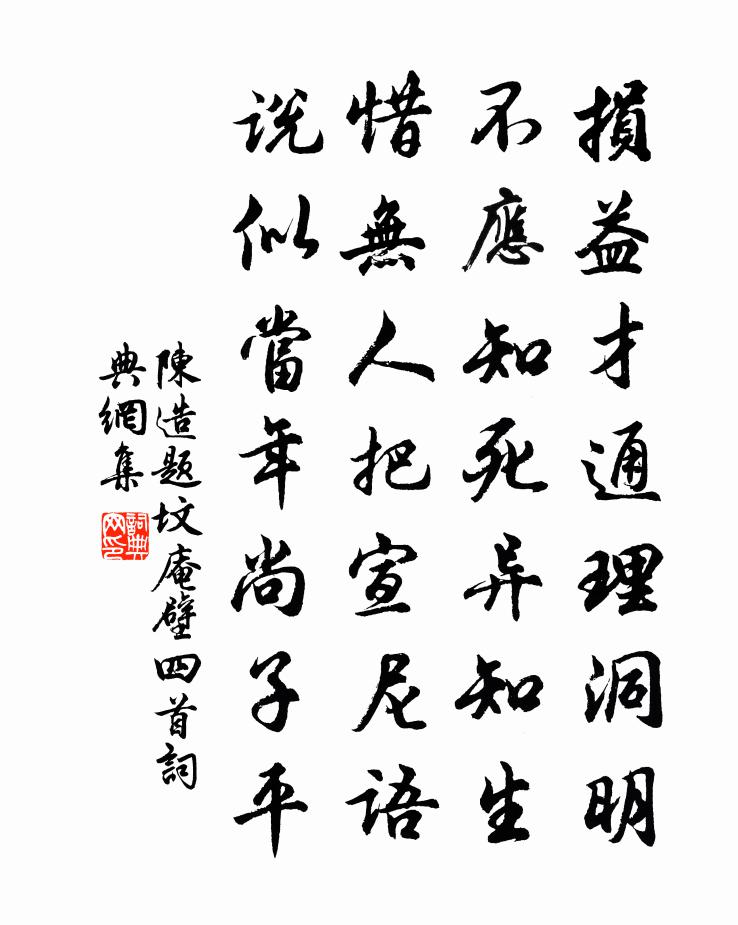 損益才通理洞明
不應知死异知生
惜無人把宣尼語
説似當年尚子平
陳造题坟庵壁四首詞
典網集
詞典网印